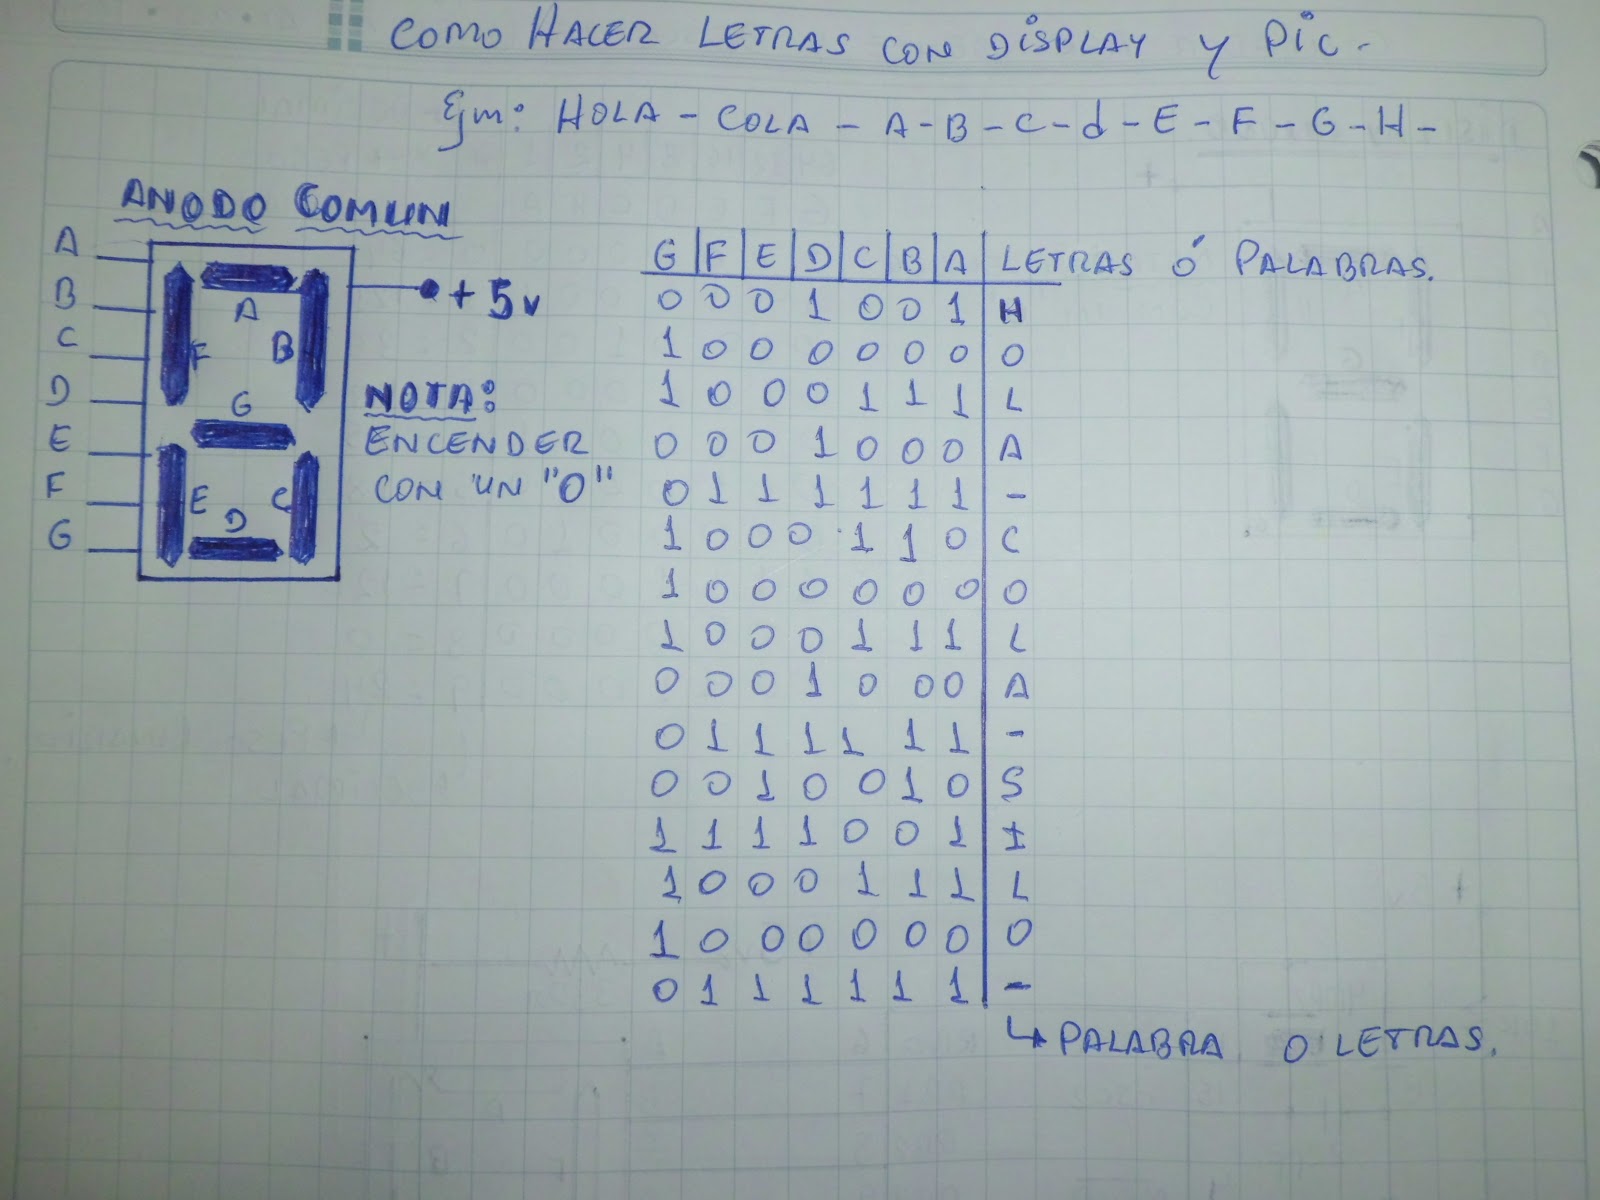 COMO HACER LETRAS CON DISPLAY Y PIC.
Ejm: HOLA - COLA - A - B - C - d - E - F - G - H -
ANODO COMUN
A
B
C
D
E
F
G
A
F B
G
E C
D
+ 5v
NOTA:
ENCENDER
CON UN "0"
G F E D C B A LETRAS Ó PALABRAS.
0 0 0 1 0 0 1 H
1 0 0 0 0 0 0 O
1 0 0 0 1 1 1 L
0 0 0 1 0 0 0 A
0 1 1 1 1 1 1 -
1 0 0 0 1 1 0 C
1 0 0 0 0 0 0 O
1 0 0 0 1 1 1 L
0 0 0 1 0 0 0 A
0 1 1 1 1 1 1 -
0 0 1 0 0 1 0 S
1 1 1 1 0 0 1 I
1 0 0 0 1 1 1 L
1 0 0 0 0 0 0 O
0 1 1 1 1 1 1 -
↳ PALABRA O LETRAS.